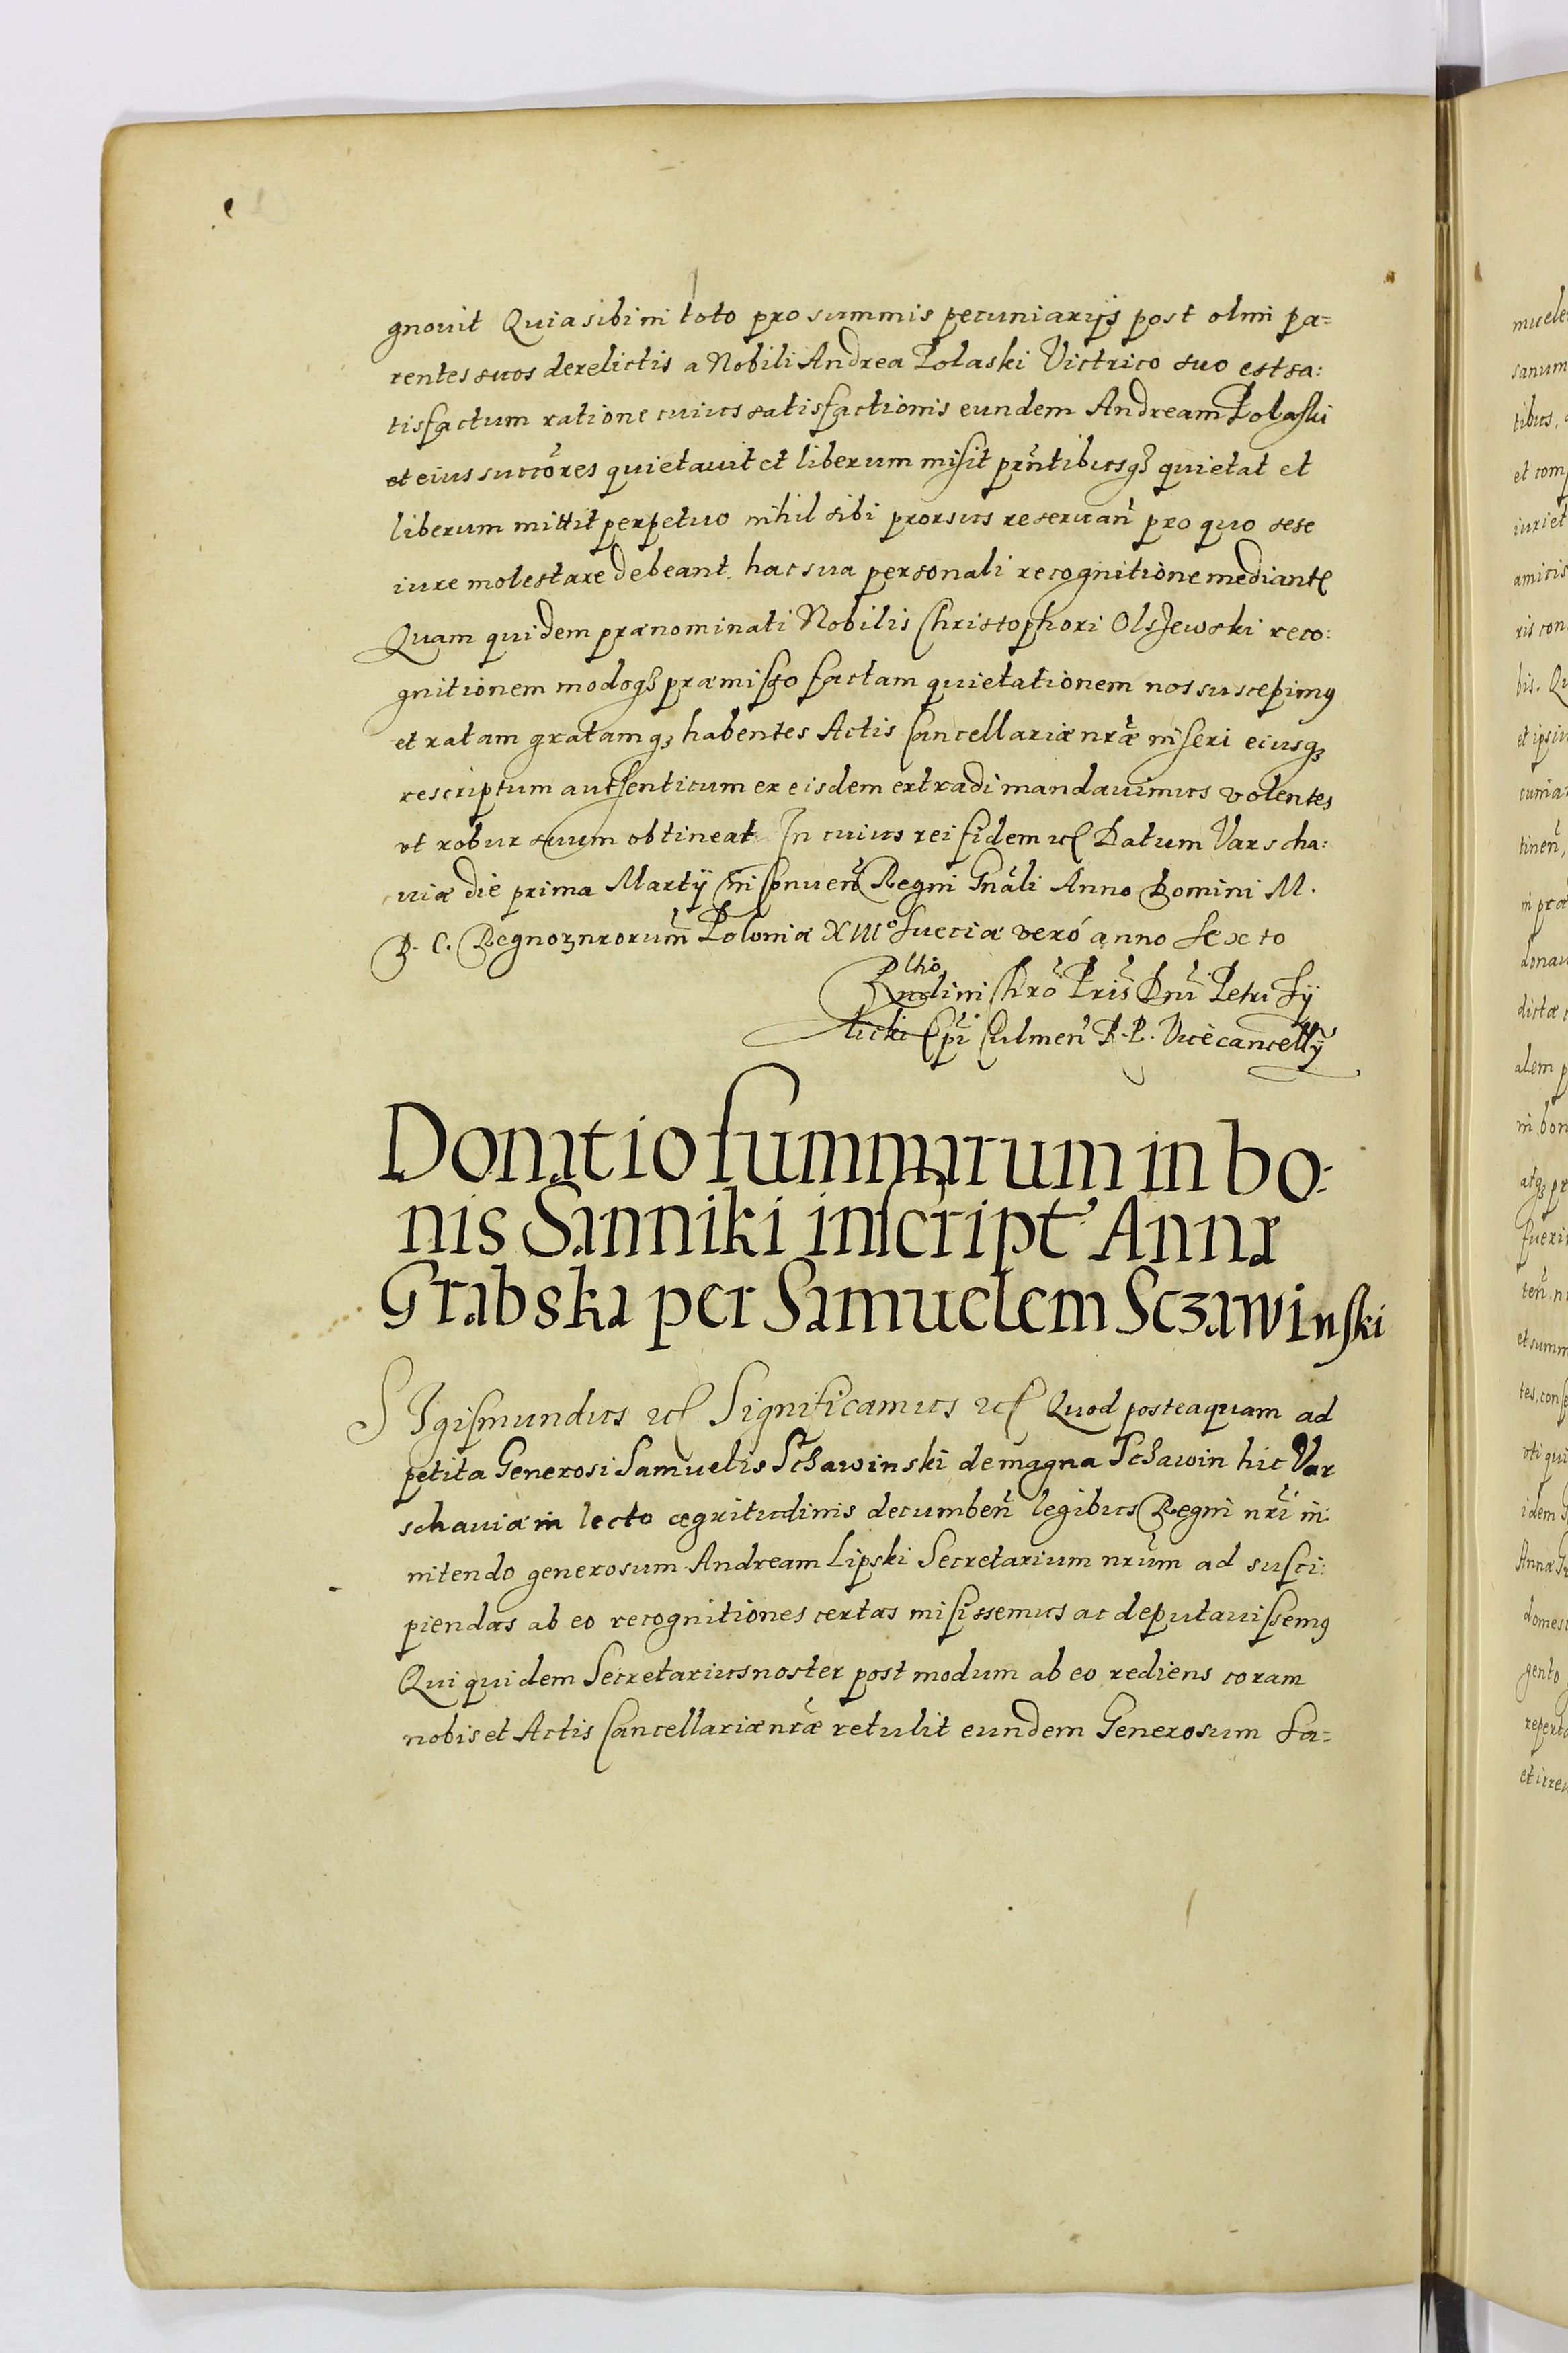 gnouit Quia sibi in toto pro summis pecuniarijs post olim pa=
rentes suos derelictis a Nobili Andrea Polaski Victrico suo est sa:
tisfactum ratione cuius satisfactionis eundem Andream Polaski
et eius succõres quietauit et liberum misit prñtibusqꝫ quietat et
liberum mittit perpetuo nihil sibi prorsus reseruañ pro quo sese
iure molestare debeant hac sua personali recognitione mediante
Quam quidem prænominati Nobilis Christophori Olszewski reco:
gnitionem modoqꝫ præmisso factam quietationem nos suscepimꝰ
et ratam gratamqꝫ habentes Actis Cancellariæ nrãe inseri eiusqꝫ
rescriptum authenticum ex eisdem extradi mandauimus volentes
vt robur suum obtineat In cuius rei fidem etc Datum Varscha:
uiæ die prima Martij in Conueñ Regni Gnãli Anno Domini M.
D. C. Regnoꝝ nrorum̃ Poloniæ XIIIº Sueciæ veró anno Sexto
Rndi in Chrõ Pris̃ Dnĩ Petri Ty
licki Epĩ Culmeñ R. P. Vicecancellỹ
Donatio summarum in bo:
nis Sanniki inscript Anna
Grabska per Samuelem Sczawinski
SIgismundus etc Significamus etc Quod posteaquam ad
petita Generosi Samuelis Sczawinski de magna Sczawin hic Var
schauiæ in lecto ægritudinis decumbeñ legibus Regni nrĩ in:
nitendo generosum Andream Lipski Secretarium nrũm ad susci:
piendas ab eo recognitiones certas misissemus ac deputauissemꝰ
Qui quidem Secretarius noster post modum ab eo rediens coram
nobis et Actis Cancellariæ nrãe retulit eundem Generosum Sa=